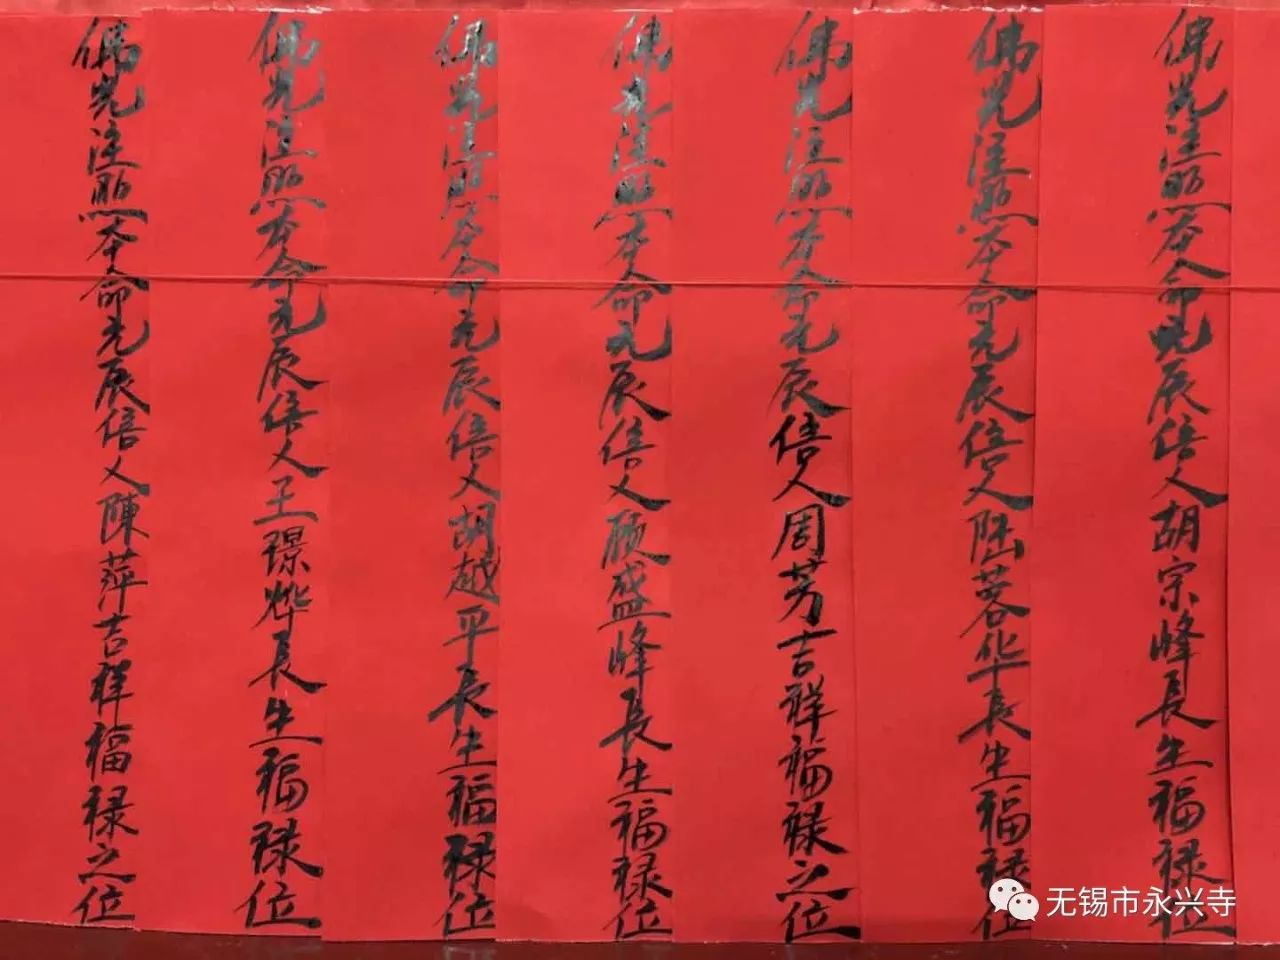 佛光注照本命元辰信人胡宗峰長生福禄位
佛光注照本命元辰信人陆蓉华長生福禄位
佛光注照本命元辰信人周芳吉祥福禄之位
佛光注照本命元辰信人顾盛峰長生福禄位
佛光注照本命元辰信人胡越平長生福禄位
佛光注照本命元辰信人王璟烨長生福禄位
佛光注照本命元辰信人陳萍吉祥福禄之位
无锡市永兴寺